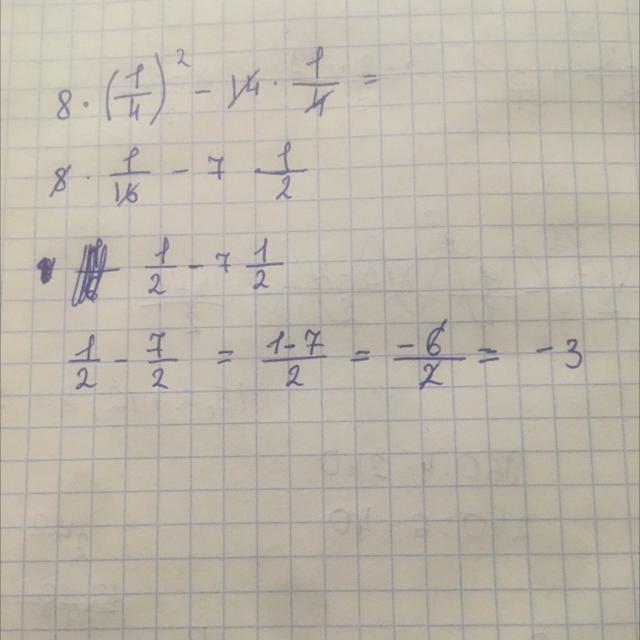 8 · (1/4)² - 14 · 1/4 =
8 · 1/16 - 7 1/2
1/2 - 7 1/2
1/2 - 7/2 = 1-7/2 = -6/2 = -3